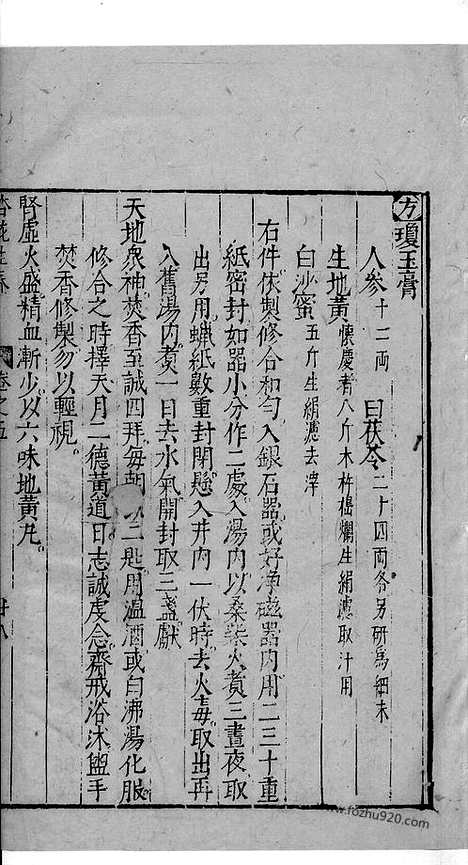 方瓊玉膏
人參十二兩 白茯苓二十四兩各另研爲細末
生地黃懷慶者八斤木杵搗爛生絹濾取汁用
白沙蜜五斤生絹濾去滓
右件依製修合和勻入銀石器或好凈磁器內用二三十重
紙密封如器小分作二處入湯內以桑柴火煮三晝夜取
出另用蠟紙數重封閉懸入井內一伏時去火毒取出再
入舊湯內煮一日去水氣開封取三盞獻
天地衆神焚香至誠四拜每朝二匙用溫酒或白沸湯化服
修合之時擇天月二德黃道日志誠虔念齋戒浴沐盥手
焚香修製勿以輕視
腎虛火盛精血漸少以六味地黃丸
卷之五 廿八
www.fozhu920.com